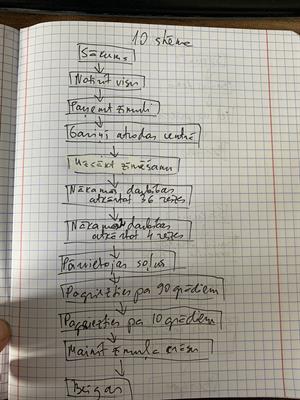 10 shēma
Sākums
Notīrīt visu
Paņemt zīmuli
Gariņš atrodas centrā
Uzsākt zīmēšanu
Nākamās darbības
atkārtot 36 reizes
Nākamās darbības
atkārtot 4 reizes
Pārvietojas soļus
Pagriezties pa 90 grādiem
Pagriezties pa 10 grādiem
Mainīt zīmuļa krāsu
Beigas